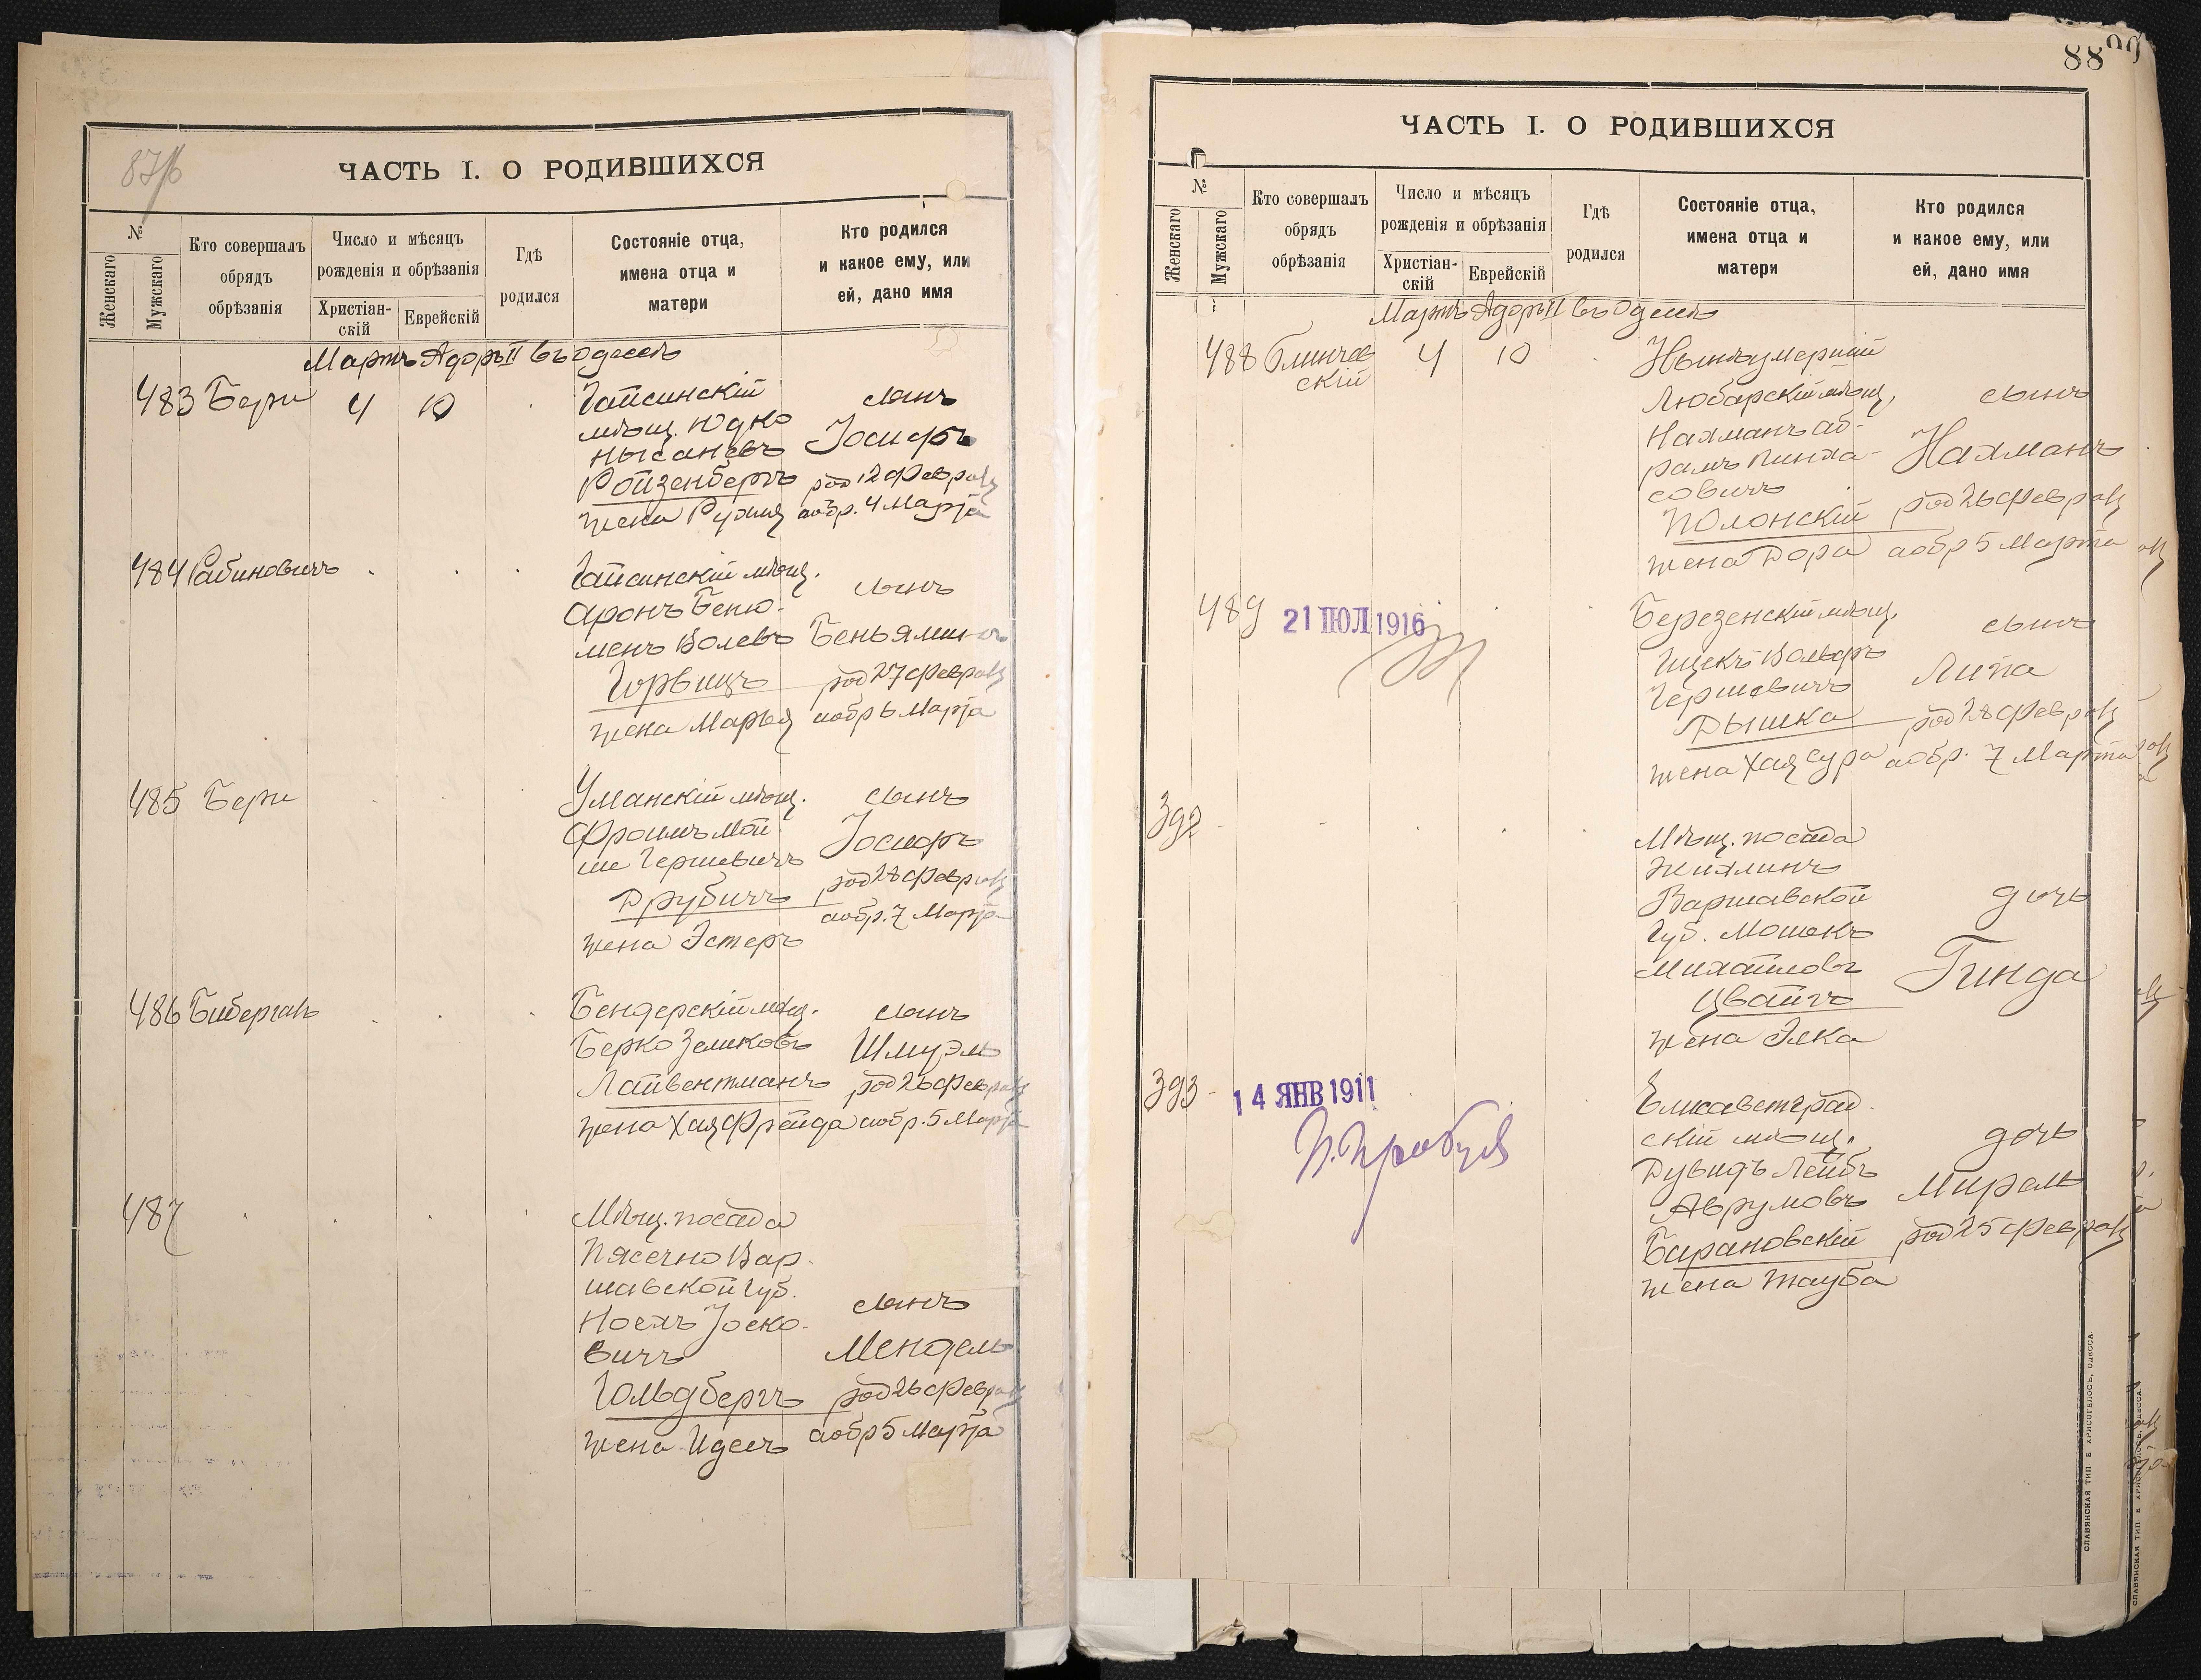 87/б
ЧАСТЬ I. О РОДИВШИХСЯ
№
Женскаго
Мужскаго
Кто совершалъ
обрядъ
обрѣзанія
Число и мѣсяцъ
рожденія и обрѣзанія
Христіан-
скій
Еврейскій
Гдѣ
родился
Состояніе отца,
имена отца и
матери
Кто родился
и какое ему, или
ей, дано имя
Мартъ Адоръ II въ Одессѣ
483 Бери 4 10
Гайсинскій
мѣщ. Юдко
Нысановъ
Ройзенбергъ
жена Рухля
сынъ
Іосифъ
род 12 Февраля
а обр. 4 Марта
484 Рабиновичъ
Гайсинскій мѣщ.
Аронъ Беню-
менъ Волевъ
Горвицъ
жена Марья
сынъ
Беньяминъ
род 27 Февраля
а обр 6 Марта
485 Бери
Уманскій мѣщ.
Фроимъ Мой-
ше Гершевичъ
Друбичъ
жена Эстеръ
сынъ
Іосифъ
род 28 Февраля
а обр. 7 Марта
486 Бибергалъ
Бендерскій мѣщ.
Берко Зеликовъ
Лайвентманъ
жена Хая Фрейда
сынъ
Шмуэль
род 26 Февраля
а обр. 5 Марта
487
Мѣщ. посада
Пясечно Вар-
шавской губ.
Носехъ Іоско-
вичъ
Гольдбергъ
жена Идесъ
сынъ
Мендель
род 26 Февраля
а обр 5 Марта
88
ЧАСТЬ I. О РОДИВШИХСЯ
№
Женскаго
Мужскаго
Кто совершалъ
обрядъ
обрѣзанія
Число и мѣсяцъ
рожденія и обрѣзанія
Христіан-
скій
Еврейскій
Гдѣ
родился
Состояніе отца,
имена отца и
матери
Кто родился
и какое ему, или
ей, дано имя
Мартъ Адоръ II въ Одессѣ
488 Блинчев
скій 4 10
Нынѣ умершій
Любарскій мѣщ.
Нахманъ Аб-
рамъ Пинха-
совичъ
Полонскій
жена Дора
сынъ
Нахманъ
род 26 Февраля
а обр 5 Марта
489
21 ІЮЛ 1916
Березенскій мѣщ.
Ицекъ Вольфъ
Гершевичъ
Дышка
жена Хая Сура
сынъ
Липа
род 28 Февраля
а обр. 7 Марта
392
Мѣщ. посада
Жихлинъ
Варшавской
губ. Мошекъ
Михайловъ
Цвайгъ
жена Элка
дочь
Гинда
393
14 ЯНВ 1911
Елисаветград-
скій мѣщ.
Дувидъ Лейбъ
Аврумовъ
Барановскій
жена Тауба
дочь
Мирель
род 25 Февраля
СЛАВЯНСКАЯ ТИП. Е. ХРИСОГЕЛОСЪ, ОДЕССА.